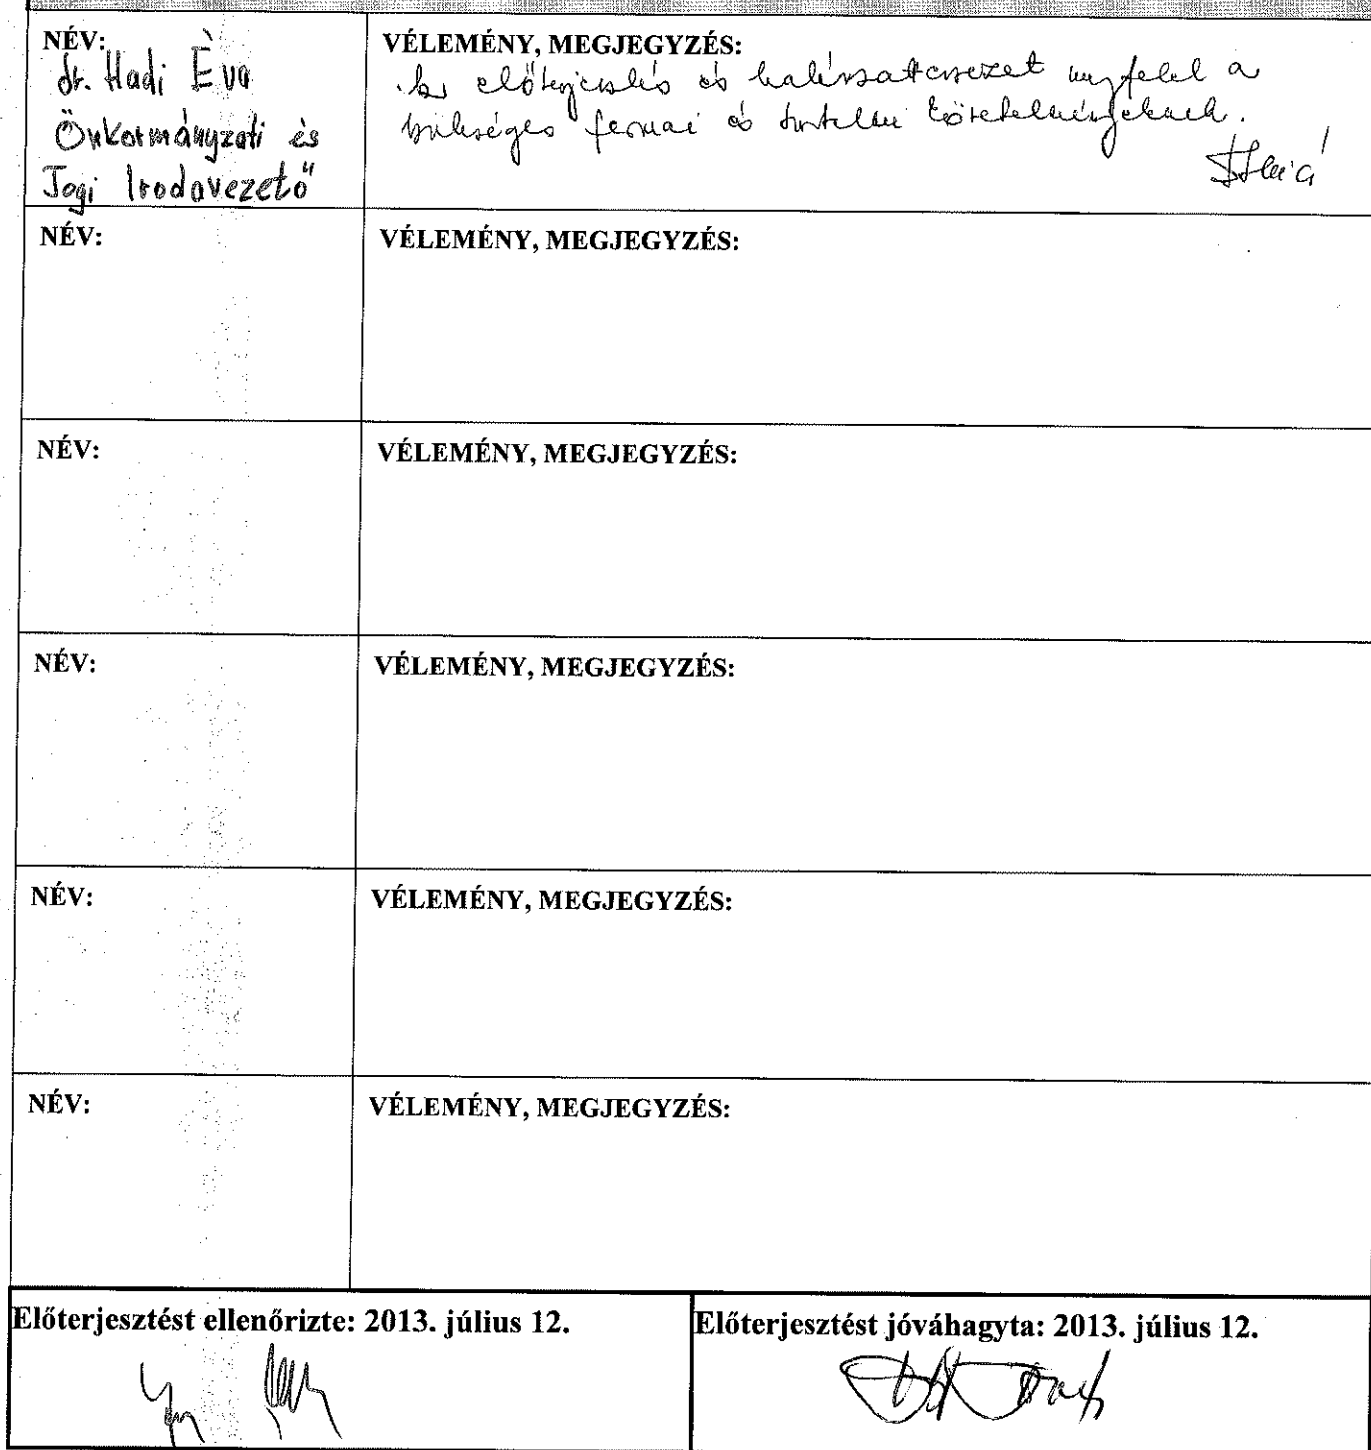 NÉV:
dr. Hadi Éva
Önkormányzati és
Jogi Irodavezető
VÉLEMÉNY, MEGJEGYZÉS:
Az előterjesztés és határozattervezet megfelel a
szükséges formai és tartalmi követelményeknek.
NÉV:
VÉLEMÉNY, MEGJEGYZÉS:
NÉV:
VÉLEMÉNY, MEGJEGYZÉS:
NÉV:
VÉLEMÉNY, MEGJEGYZÉS:
NÉV:
VÉLEMÉNY, MEGJEGYZÉS:
NÉV:
VÉLEMÉNY, MEGJEGYZÉS:
Előterjesztést ellenőrizte: 2013. július 12.
Előterjesztést jóváhagyta: 2013. július 12.